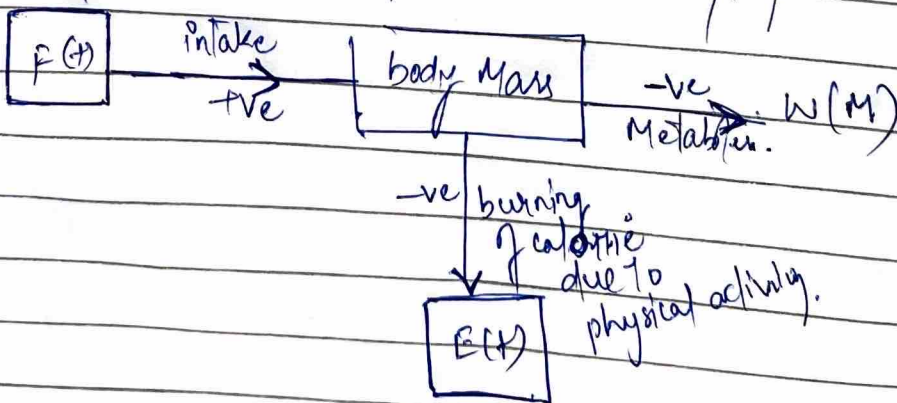 F(t)
intake
+ve
body Mass
-ve
W(M)
-ve
burning
of calorie
due to
physical activity.
E(t)